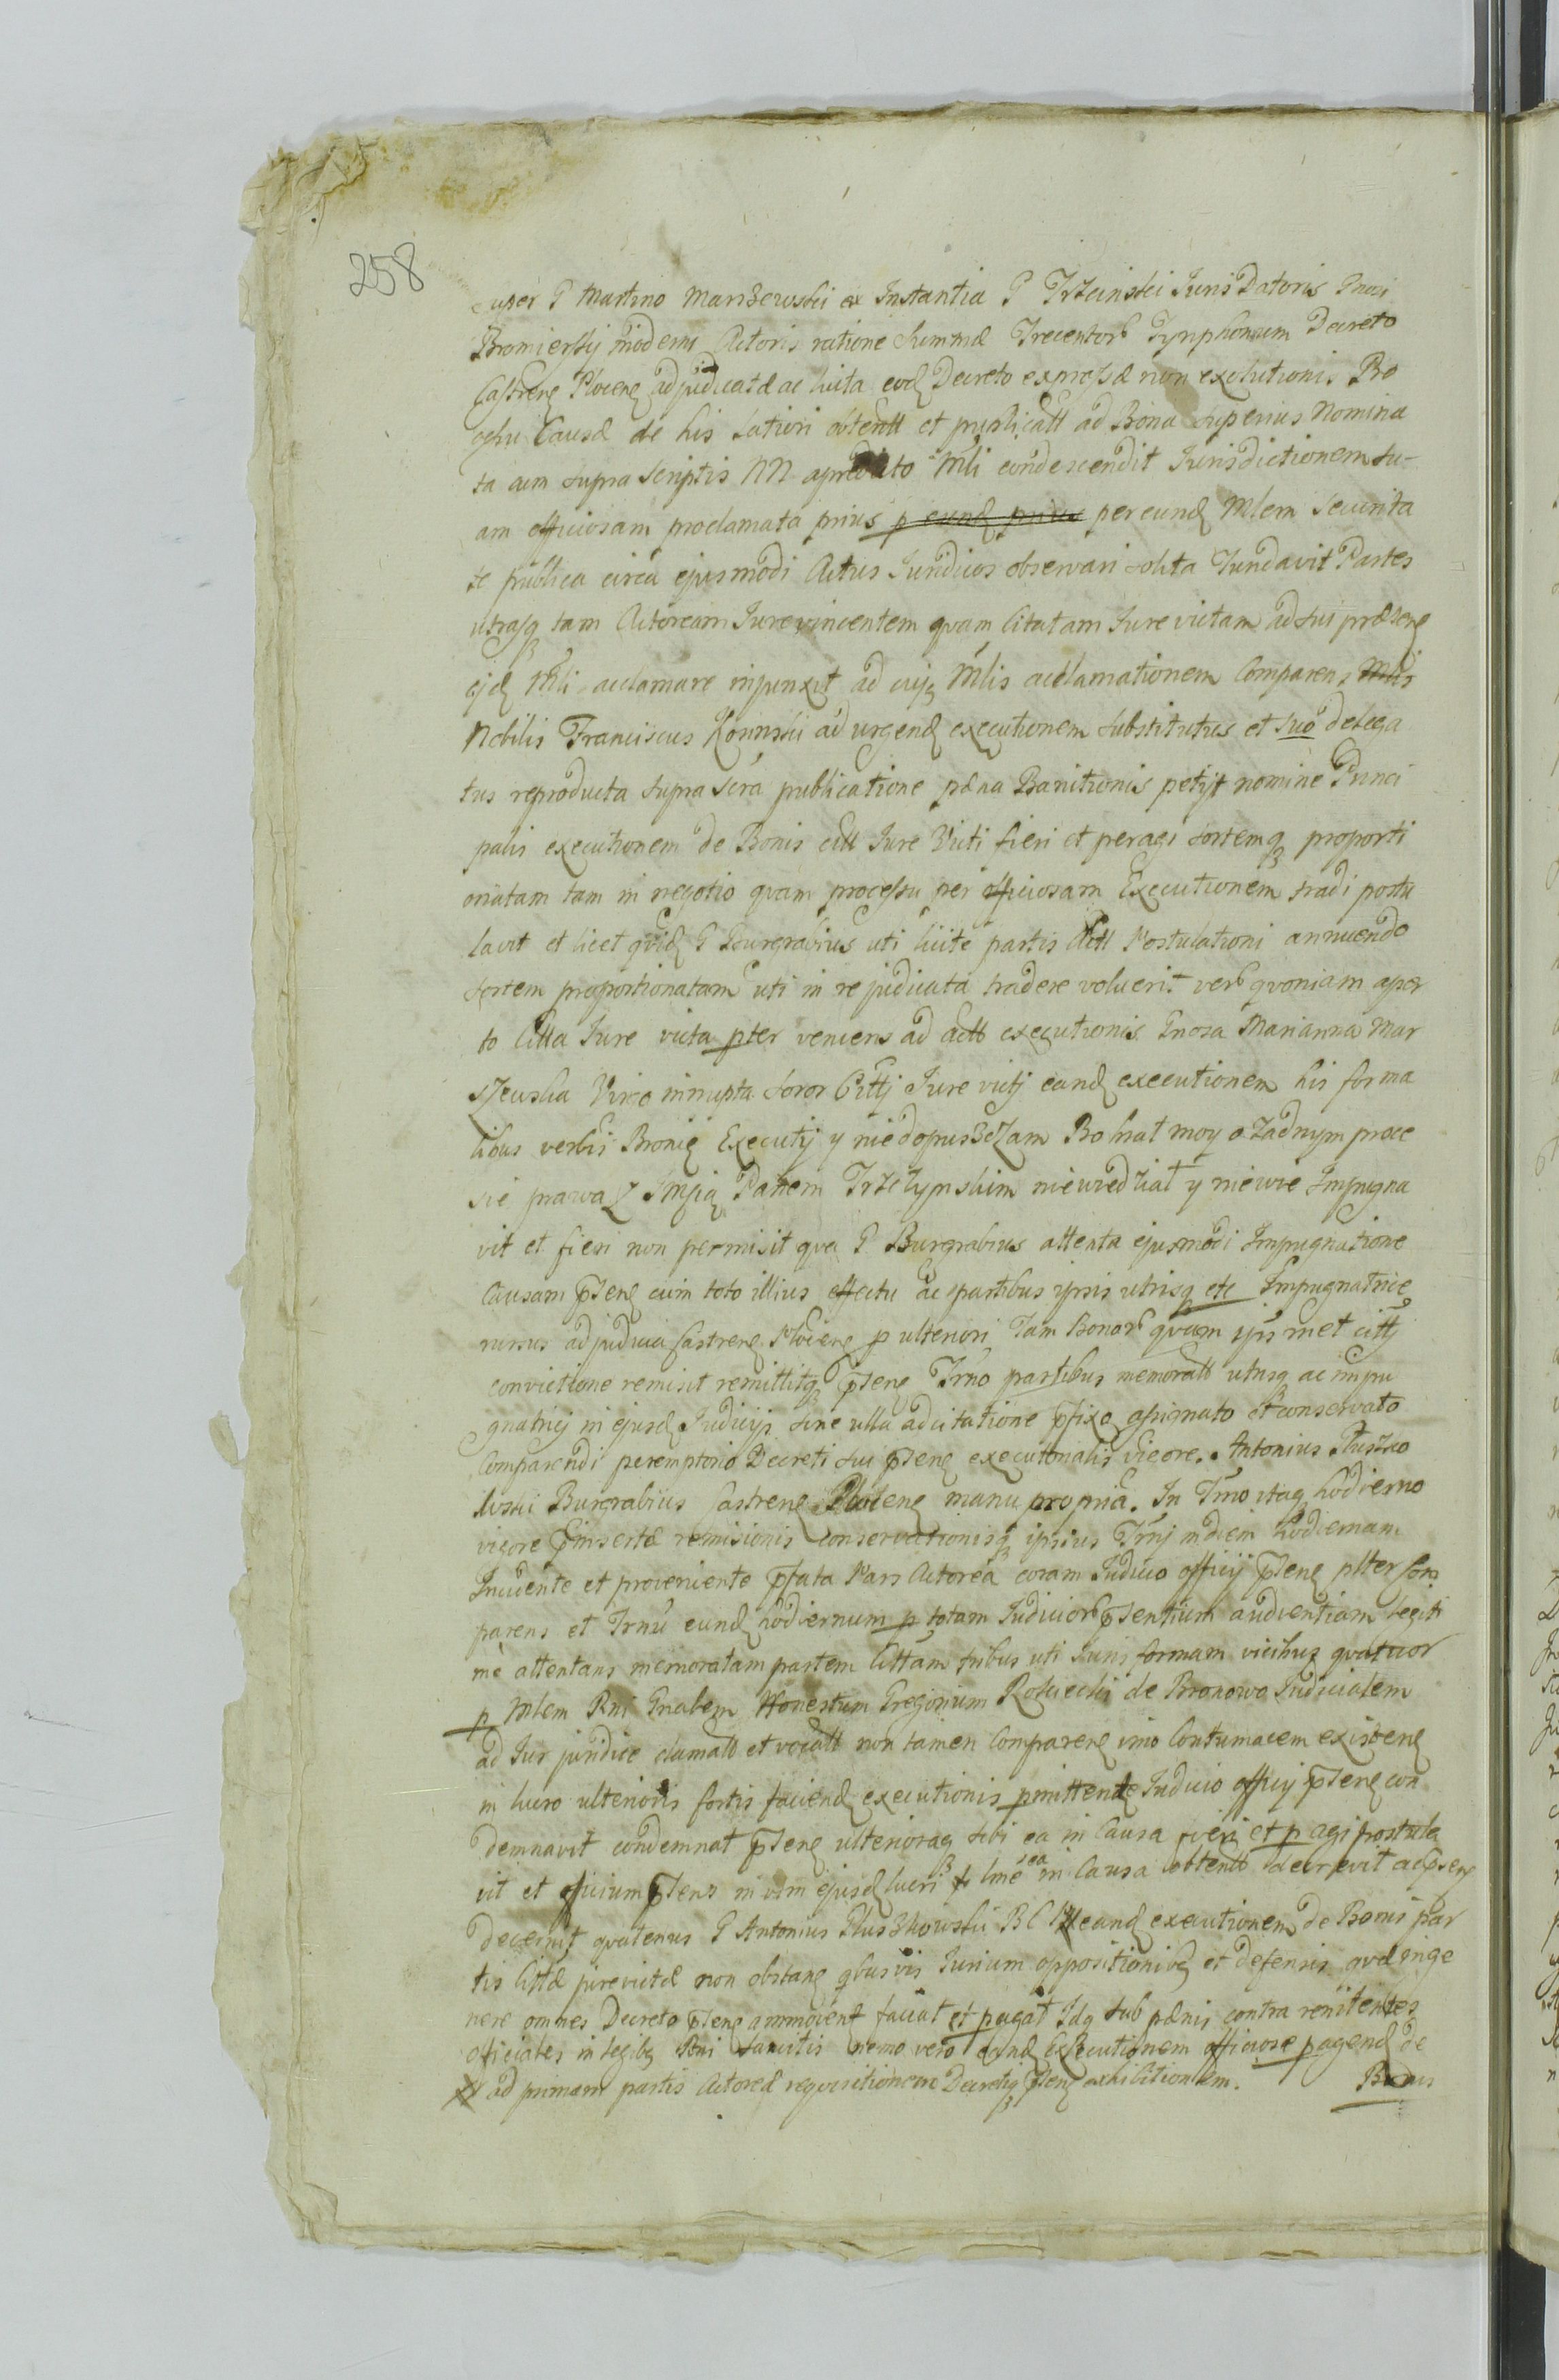 258
super G Martino Marszewski ex Instantia G Trzcinski Juris Datoris Gnosi
Bromierski moderni Actoris ratione Summæ Trecentorũ Tynphonum Decreto
Castrenẽ Plocenẽ adjudicatæ ac luita eod Decreto expressæ non exolutionis
causæ de his latiori obtentt et publicatt ad Bona Superius Nomina
ta cum supra scriptis NN condescendit Jurisdictionem Su-
am officiosam proclamata prius p eund prius per eund Mlem Securita
te publica circa ejusmodi Actus Juridicos observari solita fundavit Partes
utrasq tam Actoream Jurevincentem quam Citatam Jure victam ad sui præsenẽ
ejd Mli acclamare injunxit ad cujq Mlis acclamationem Comparens
Nobilis Franciscus ad urgend executionem substitutus et suo delega
tus reproducta supra scrá publicatione pæna Banitionis petijt nomine Princi
palis executionem de Bonis citt Jure Victi fieri et peragi sortemq proporti
onatam tam in negotio quam processu per officiosam Executionem tradi postu
lavit et licet qvid G Burgrabius uti luite partis Actt Postulationi annuendo
sortem proportionatam uti in re judicata tradere voluerit verũ qvoniam
to Citta Jure victa pter veniens ad actt executionis Gnosa Marianna Mar
szewska Virgo innupta soror Citti Jure victj eand executionem his forma
libus verbis Bronię Executij y niedopuszczam Bo brat moy o żadnym proce
sie prawa z Panem Trzczynskim niewiedział y niewie Impugna
vit et fieri non permisit qva G Burgrabius attenta ejusmodi Impugnatione
Causam p͞senẽ cum toto illius effectu ac partibus ipsis utrisq etc Impugnatrice
rursus ad judicia Castrenẽ Plocenẽ p ulteriori tam bonorũ qvam ipsi met citti
convictione remisit remittitq p͞senẽ Trno partibus memoratt utrisq ac impu
gnatrici in ejusd Judicijs sine ulla adcitatione p͞fixo assignato et conservato
Comparendi peremptorio Decreti sui p͞senẽ executorialis vigore. Antonius Pluszko
wski Burgrabius Castrenẽ Plocenẽ manu propria. In Trno itaq hodierno
vigore p͞insertæ remisionis conservationisq ipsius Trnj in diem hodiernam
Incidente et proveniente p͞fata Pars Actorea coram Judicio officij p͞senẽ plter Com
parens et Trnũ eund hodiernum p totam Judiciorũ p͞sentium audientiam legiti
mè attentans memoratam partem Cittam tribus uti Juris formam vicibus qvatuor
p Mlem Rni Gnalem Honestum Gregorium Rosciecki de Bronowo Judicialem
ad Jus juridice clamatt et vocatt non tamen Comparenẽ imo Contumacem existenẽ
in lucro ulterioris fortis faciend executionis pmittente Judicio officij p͞senẽ con
demnavit condemnat p͞senẽ ulterioraq sibi ea in Causa fieri et p agi postula
vit et officium p͞sens in vim ejusd lucri lme ea in Causa obtentt decrevit ac p͞senẽ
decernit qvatenus G Antonius Pluszkowski B C eand executionem de Bonis par
tis Cittæ jurevictæ non obstanẽ qbusvis Jurium oppositionibq et defensis qvæ inge
nere omnes Decreto p͞senẽ ammovent faciat et pagat Idq sub pænis contra renitentes
oficiales in legibq Rni sancitis nemo vero eand Executionem officiose pagend de
ad primam partis Actoreæ requisitionem Decretiq p͞senẽ exhibitionem. Bonis